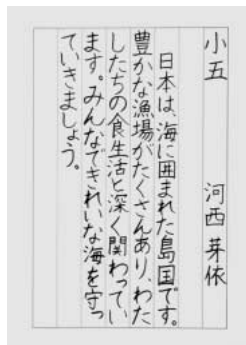 小五 河西芽依
日本は、海に囲まれた島国です。
豊かな漁場がたくさんあり、わた
したちの食生活と深く関わってい
ます。みんなできれいな海を守っ
ていきましょう。